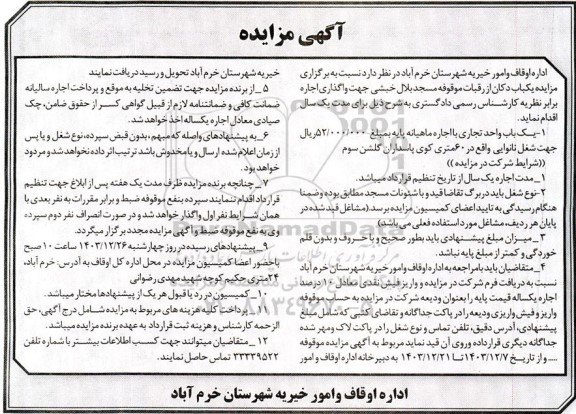 آگهی مزایده
اداره اوقاف وامور خیریه شهرستان خرم آباد در نظر دارد نسبت به برگزاری
مزایده یکباب دکان از رقبات موقوفه مسجد بلال خبشی جهت واگذاری اجاره
برابر نظریه کارشناس رسمی دادگستری به شرح ذیل برای مدت یک سال
اقدام نماید.
۱-یک باب واحد تجاری با اجاره ماهیانه پایه بمبلغ ۵۲/۰۰۰/۰۰۰ ریال
جهت شغل نانوایی واقع در ۶۰ متری کوی پاسداران گلشن سوم
((شرایط شرکت در مزایده ))
۱_ مدت اجاره یک سال از تاریخ تنظیم قرارداد میباشد.
۲-نوع شغل باید در برگ تقاضا قید و با شئونات مسجد مطابق بوده وضمنا
هنگام رسیدگی به تایید اعضای کمیسیون مزایده برسد (مشاغل قید شده در
پایان هر ردیف، مشاغل مورد استفاده فعلی می باشد)
۳_ میزان مبلغ پیشنهادی باید بطور صحیح و با حروف و بدون قلم
خوردگی و کمتر از مبلغ پایه نباشد.
۴_ متقاضیان باید با مراجعه به اداره اوقاف وامور خیریه شهرستان خرم آباد
نسبت به دریافت فرم شرکت در مزایده و واریز فیش نقدی معادل ۱۰ درصد
اجاره یکساله قیمت پایه را بعنوان ودیعه شرکت در مزایده به حساب موقوفه
واریز و فیش واریزی ودیعه را در پاکت جداگانه و تقاضای کتبی که شامل مبلغ
پیشنهادی، آدرس دقیق، تلفن تماس و نوع شغل را در پاکت لاک ومهر شده
جداگانه دیگری قرار داده و روی آن قید نماید مربوط به آگهی مزایده موقوفه
..... و از تاریخ ۱۴۰۳/۱۲/۷ تا ۱۴۰۳/۱۲/۲۱ به دبیرخانه اداره اوقاف و امور
خیریه شهرستان خرم آباد تحویل و رسید دریافت نمایند
۵_ از برنده مزایده جهت تضمین تخلیه به موقع و پرداخت اجاره سالیانه
ضمانت کافی و ضمانتنامه لازم از قبیل گواهی کسر از حقوق ضامن، چک
صیادی معادل اجاره یکساله اخذ خواهد شد.
۶_ به پیشنهادهای واصله که مبهم، بدون قبض سپرده، نوع شغل و یا پس
از زمان اعلام شده ارسال و یا مخدوش باشد ترتیب اثر داده نخواهد شد و مردود
خواهد بود.
۷_ چنانچه برنده مزایده ظرف مدت یک هفته پس از ابلاغ جهت تنظیم
قرارداد اقدام ننمایند سپرده بنفع موقوفه ضبط و برابر مقررات به نفر بعدی با
همان شرایط نفر اول واگذار خواهد شد و در صورت انصراف نفر دوم سپرده
وی به نفع موقوفه ضبط و آگهی مزایده مجدد برگزار میگردد.
۹_ پیشنهادهای رسیده در روز چهارشنبه ۱۴۰۳/۱۲/۲۶ ساعت ۱۰ صبح
با حضور اعضا کمیسیون مزایده در محل اداره کل اوقاف به آدرس: خرم آباد،
۲۴متری حکیم کوچه شهید مهدی رضوانی
۱۰_ کمیسیون در رد یا قبول هر یک از پیشنهادها مختار میباشد.
۱۱_ پرداخت کلیه هزینه های مربوط به مزایده شامل درج آگهی، حق
الزحمه کارشناس و هزینه ثبت قرارداد به عهده برنده مزایده میباشد.
۱۲_ متقاضیان میتوانند جهت کسب اطلاعات بیشتر با شماره تلفن
۳۳۳۳۹۵۲۲ تماس حاصل نمایند.
اداره اوقاف وامور خیریه شهرستان خرم آباد